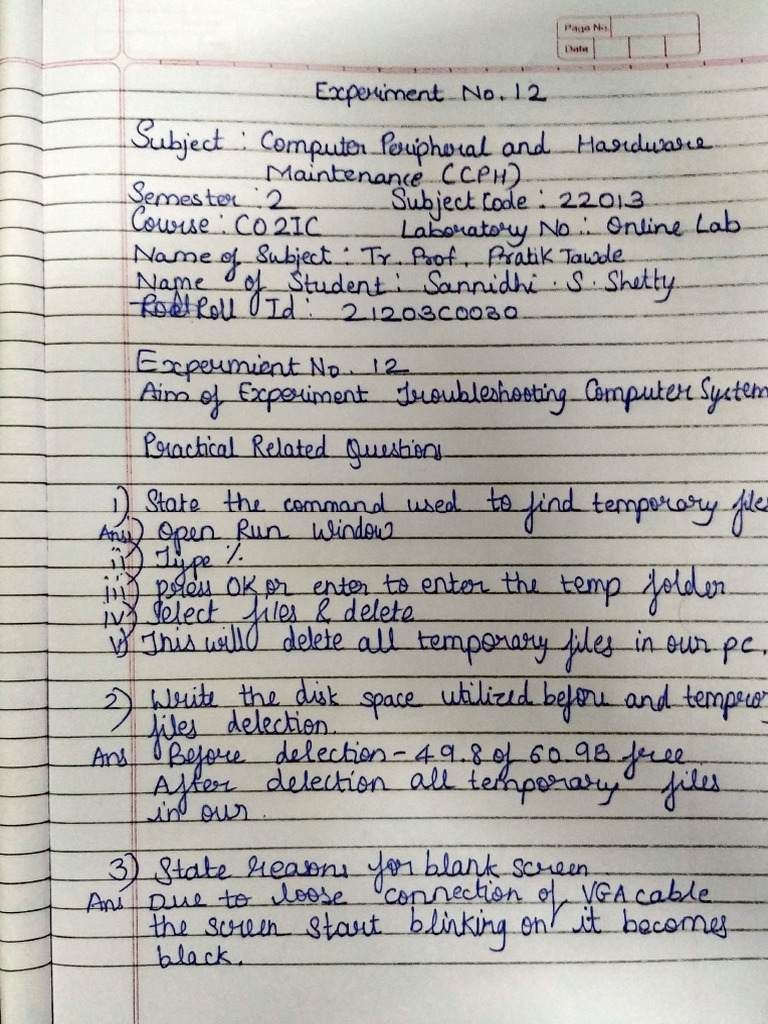 Page No.
Date
Experiment No. 12
Subject : Computer Peripheral and Hardware
Maintenance (CPH)
Semester : 2 Subject Code : 22013
Course : CO2IC Laboratory No. : Online Lab
Name of Subject : Tr. Prof. Pratik Tawde
Name of Student : Sannidhi . S . Shetty
Roll Id : 21203C0030
Expermient No. 12
Aim of Experiment Troubleshooting Computer System
Practical Related Questions
1) State the command used to find temporary files
Ans i) Open Run Window
ii) Type %
iii) press OK or enter to enter the temp folder
iv) Select files & delete
v) This will delete all temporary files in our pc.
2) Write the disk space utilized before and tempror
files delection.
Ans Before delection - 49.8 of 60.9B free
After delection all temporary files
in our
3) State reasons for blank screen
Ans Due to loose connection of VGA cable
the screen start blinking on it becomes
black.